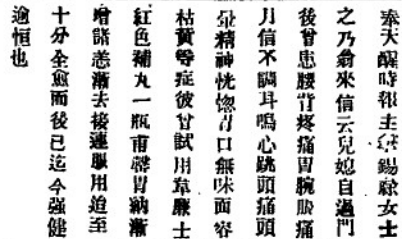 奉天醒時報主錫女士
之乃翁來信云兒媳自過門
後曾患腰背疼痛胃脘脹痛
月信不調耳鳴心跳頭痛頭
暈精神恍惚胃口無味面容
枯黃等症彼曾試用韋廉士
紅色補丸一瓶甫罄胃納漸
增諸恙漸去接連服用迨至
十分全愈而後已迄今強健
逾恒也